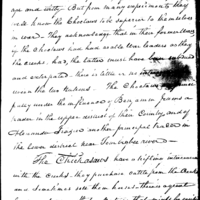 age and ability. But from many experiments they
well know the Choctaws to be superior to themselves
in war. They acknowledge that in their former wars
if the Choctaws had had as able war leaders as they
the creeks had, the latter must have been
and extirpated. There is little or no
between the two Nations. The Choctaws are princi-
pally under the influence of Benjamin James a
trader in the upper district of their Country, and of
Alexander Frazier another principal trader in
the lower district near Tombigbee river—
The Chickasaws have a shifting intercourse
with the Creeks. they purchase cattle from the Creeks
and sometimes sell them horses—their agent